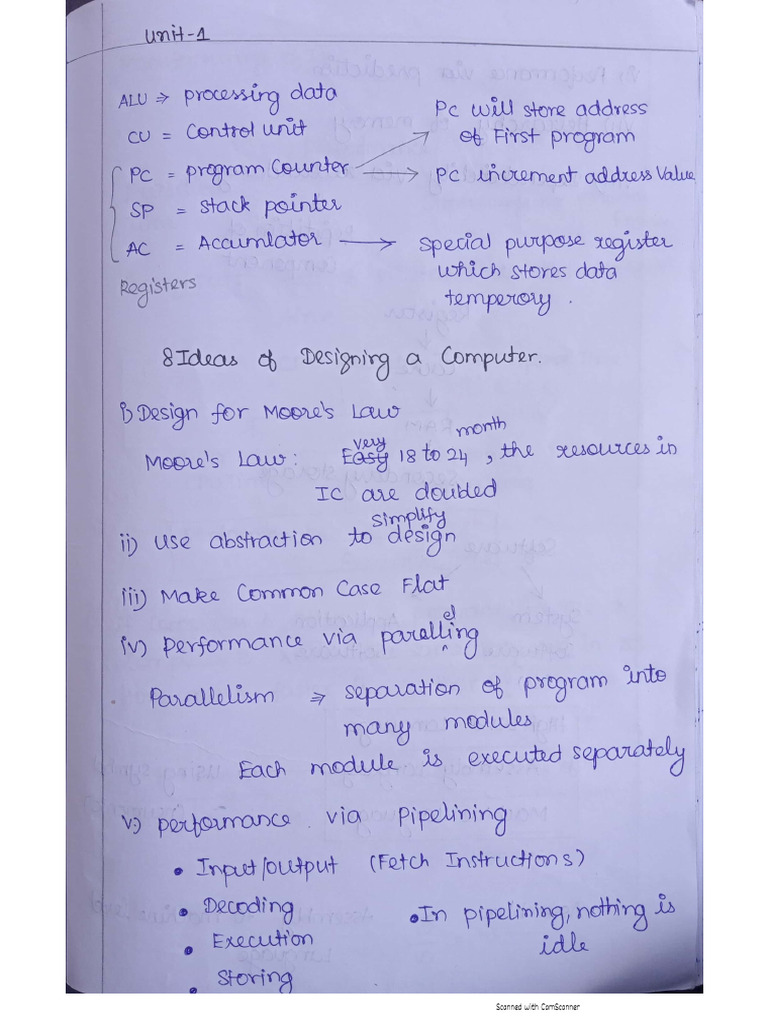 Unit-1
ALU => processing data
CU = Control unit
PC = program Counter
Pc will store address
of First program
Pc increment address Value
SP = stack pointer
AC = Accumlator → special purpose register
which stores data
temperory .
Registers
8 Ideas of Designing a Computer.
i) Design for Moore's Law
Moore's Law: Easy very 18 to 24 month, the resources in
IC are doubled
ii) Use abstraction to simplify design
iii) Make Common Case Flat
iv) performance via parelleling
Parallelism => separation of program into
many modules
Each module is executed separately
v) performance via pipelining
• Input/output (Fetch Instructions)
• Decoding
• Execution
• Storing
• In pipelining, nothing is
idle
Scanned with CamScanner